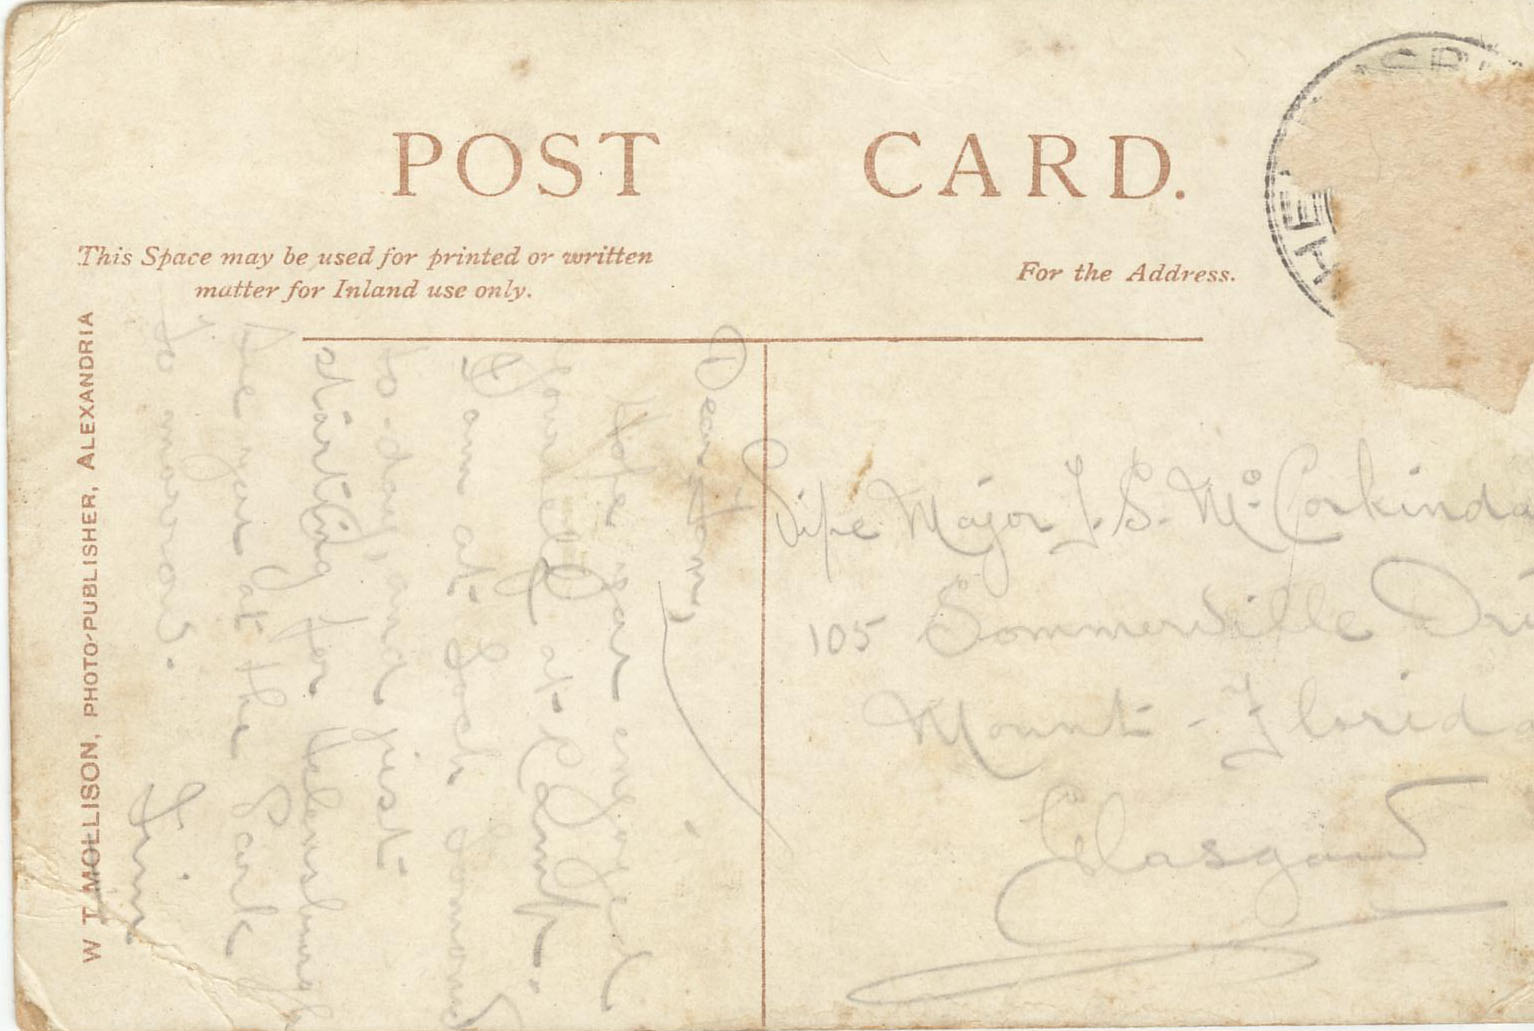 POST CARD.
This Space may be used for printed or written
matter for Inland use only.
For the Address.
W T. MOLLISON, PHOTO-PUBLISHER, ALEXANDRIA
Dear Tom,
Hope you enjoyed
yourself at Camp.
I am at Loch Lomond
to-day, and just
starting for Helensburgh
See you at the Park
To morrow.
Jim
Pipe Major J. S. McCorkinda
105 Sommerville Dri
Mount-Florida
Glasgow
HE